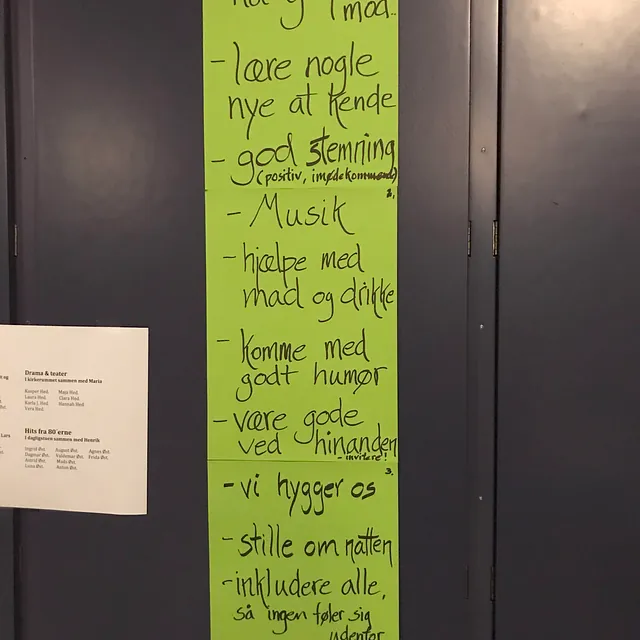 - lære nogle
nye at kende
- god stemning
(positiv, imødekommende)
2,
- Musik
- hjælpe med
mad og drikke
- komme med
godt humør
- være gode
ved hinanden
- invitere!
3.
- vi hygger os
- stille om natten
- inkludere alle,
så ingen føler sig
udenfor
Drama & teater
I kirkerummet sammen med Maria
Kasper Hed. Maja Hed.
Laura Hed. Clara Hed.
Karla J. Hed. Hannah Hed.
Vera Hed.
Hits fra 80'erne
I dagligstuen sammen med Henrik
Ingrid Øst. August Øst. Agnes Øst.
Dagmar Øst. Valdemar Øst. Freda Øst.
Astrid Øst. Mads Øst.
Luna Øst. Anton Øst.